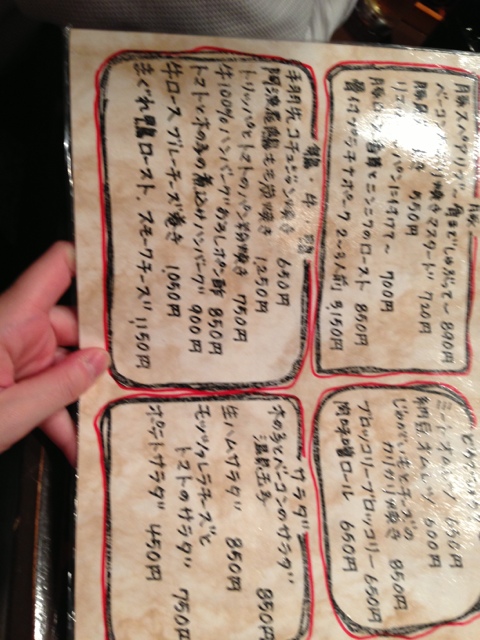 豚
豚スペアリブ 骨までしゃぶって〜 800円
ベーコン 焼きマスタード 720円
550円
リエット パンに付けて〜 700円
豚 とニンニクのロースト 850円
骨付プラチナポーク 2〜3人前 3,150円
鶏 牛 鴨
手羽先コチュジャン焼き 650円
阿波尾鶏もも炭焼き 1,250円
トリッパとトマトのパン粉焼き 750円
牛100%ハンバーグおろしポン酢 850円
トマトときのこの煮込みハンバーグ 900円
牛ロース ブルーチーズ巻き 1,050円
まぐれ鴨ロースト、スモークチーズ 1,150円
ミートオムレツ 650円
明太オムレツ 600円
じゃがいもとチーズのカリカリ焼き 850円
ブロッコリーブロッコリー 650円
ロール 650円
サラダ
きのことベーコンのサラダ 850円
温泉玉子
生ハムサラダ 850円
モッツァレラチーズと
トマトのサラダ 750円
ポテトサラダ 450円